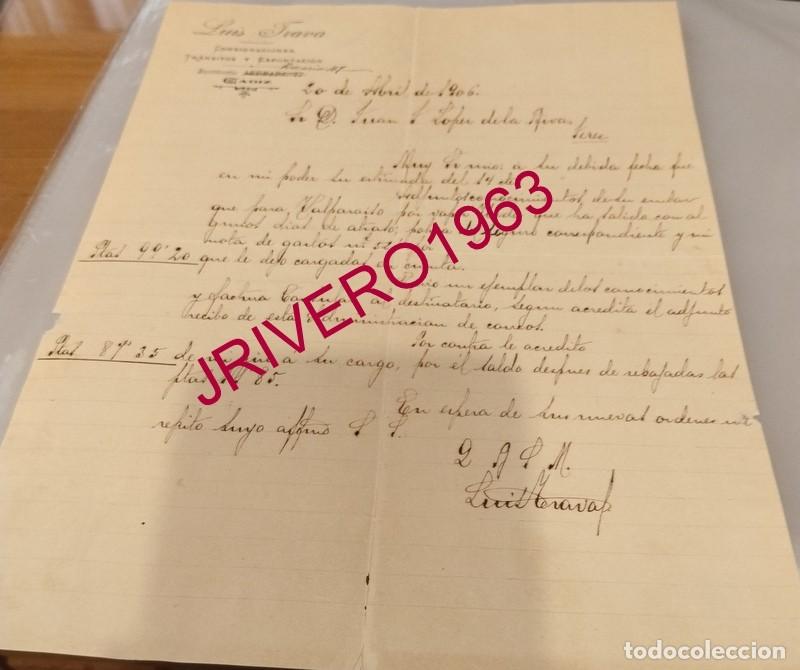 Luis Trava
CONSIGNACIONES
TRÁNSITOS Y EXPORTACIÓN
CÁDIZ
20 de Abril de 1906.
Sr D. Juan S Lopez de la Riva
Jerez
Muy Sr mio: a su debida fecha fue
en mi poder su estimada del 14 de
conocimientos de su embar
que para Valparaiso por que ha salido con al
gunos dias de atraso; seguro correspondiente y mi
nota de gastos nº por
Ptas 99"20 que le dejo cargadas en cuenta.
un ejemplar de los conocimientos
y factura al destinatario, segun acredita el adjunto
recibo de esta administracion de correos.
Por contra le acredito
Ptas 89"35 de a su cargo, por el saldo despues de rebajadas las
ptas 85.
En espera de sus nuevas ordenes me
repito suyo affmo S S.
Q B S M.
Luis Trava
JRIVERO1963
todocoleccion